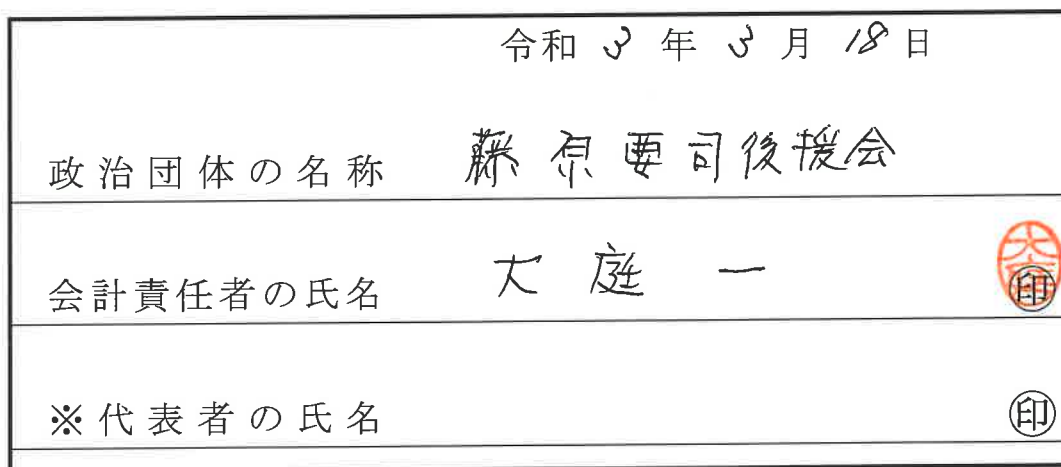 令和 3 年 3 月 18 日
政治団体の名称 藤原要司後援会
会計責任者の氏名 大庭一 ㊞
※代表者の氏名 ㊞